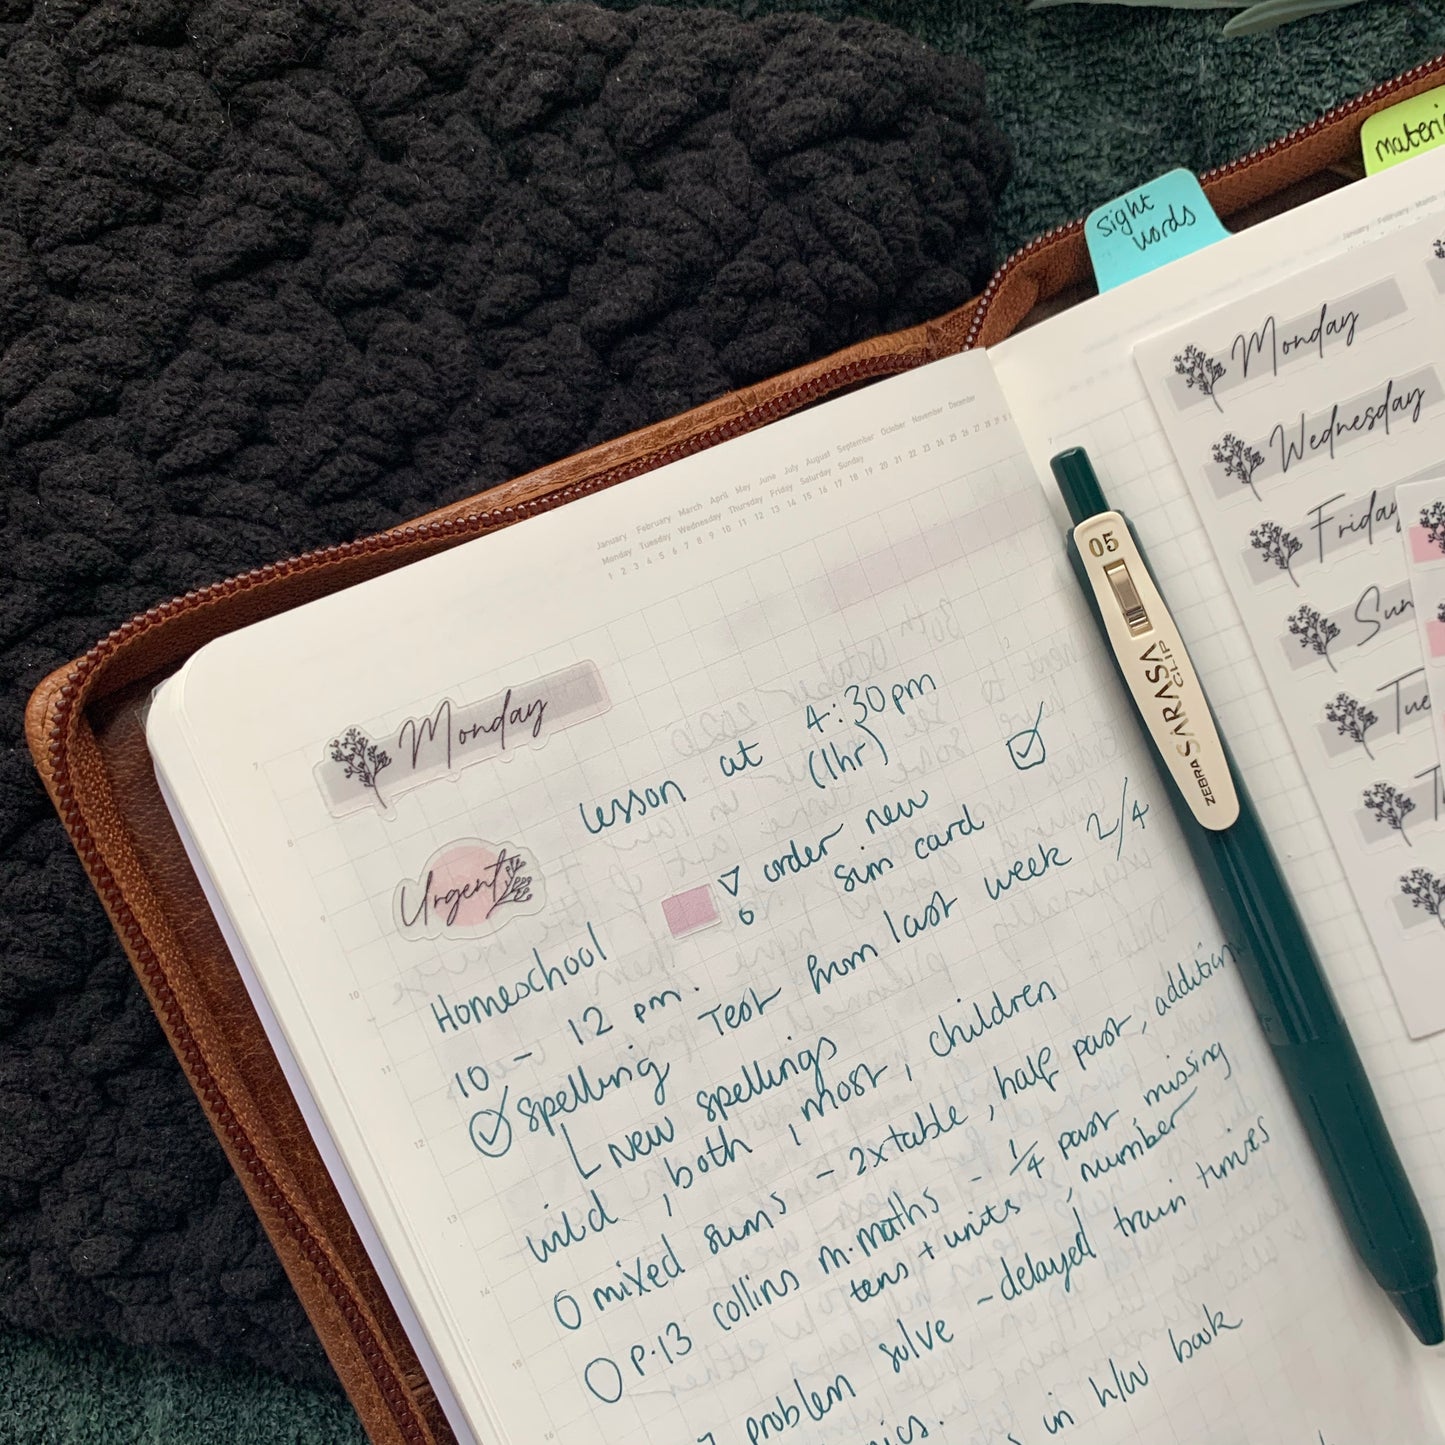 sight
words
materi
January February March April May June July August September October November December
Monday Tuesday Wednesday Thursday Friday Saturday Sunday
1 2 3 4 5 6 7 8 9 10 11 12 13 14 15 16 17 18 19 20 21 22 23 24 25 26 27 28 29
January February March
Monday
lesson at 4:30pm
(1hr)
Urgent
order new
sim card
Homeschool
10 - 12 pm.
spelling Test from last week 2/4
New spellings
wild, both, most, children
mixed sums - 2xtable, half past, addition
P.13 collins m.maths - 1/4 past, missing
tens + units, number
problem solve - delayed train times
in h/w book
7
8
9
10
11
12
13
14
15
16
05
ZEBRA SARASA CLIP
Monday
Wednesday
Friday
Sun
Tue
T